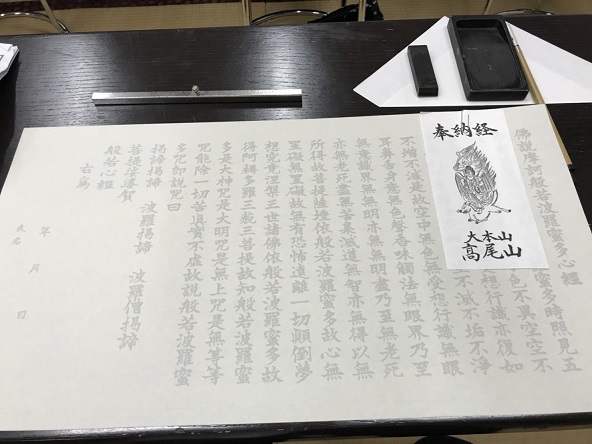 佛説摩訶般若波羅蜜多心經
蜜多時照見五
色不異空空不
想行識亦復如
不滅不垢不淨
不增不減是故空中無色無受想行識無眼
耳鼻舌身意無色聲香味觸法無眼界乃至
無意識界無無明亦無無明盡乃至無老死
亦無老死盡無苦集滅道無智亦無得以無
所得故菩提薩埵依般若波羅蜜多故心無
罣礙無罣礙故無有恐怖遠離一切顛倒夢
想究竟涅槃三世諸佛依般若波羅蜜多故
得阿耨多羅三藐三菩提故知般若波羅蜜
多是大神咒是大明咒是無上咒是無等等
咒能除一切苦真實不虚故說般若波羅蜜
多咒即說咒曰
揭諦揭諦 波羅揭諦 波羅僧揭諦
菩提薩婆賀
般若心經
右為
年 月 日
氏名
奉納経
大本山
高尾山